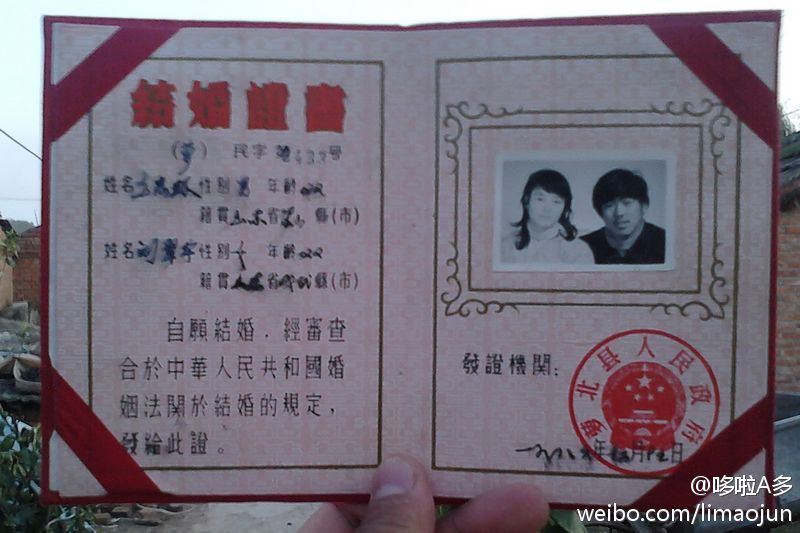 結婚證書
民字第433号
姓名 性別男 年齡
籍貫山东省 縣(市)
姓名 性別 年齡
籍貫山东省 縣(市)
自願結婚，經審查
合於中華人民共和國婚
姻法關於結婚的規定，
發給此證。
發證機関：
北县人民政府
一九八 年 月 日
@哆啦A多
weibo.com/limaojun